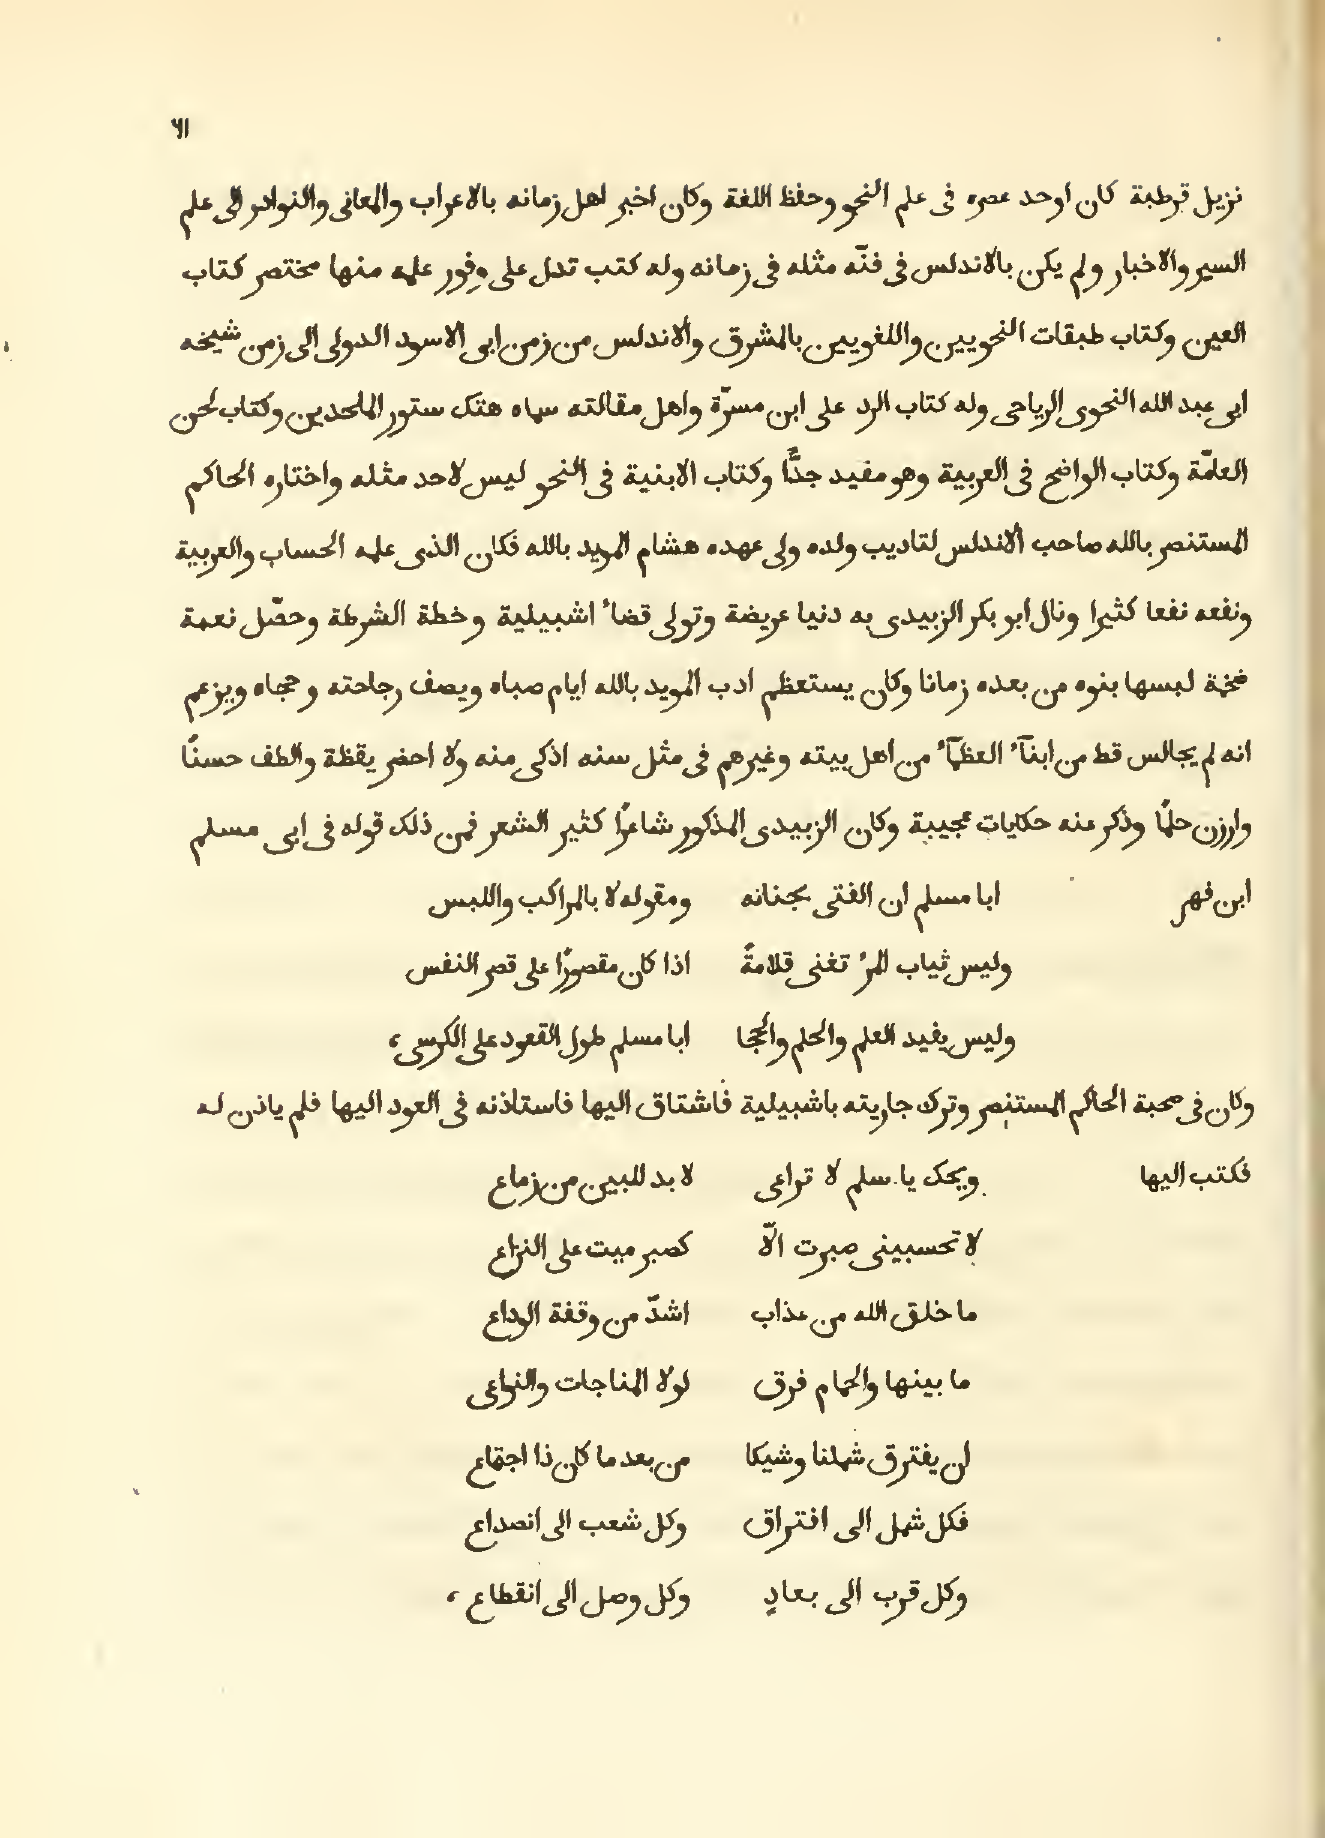 ٦١
نزيل قرطبة كان اوحد عصره فى علم النحو وحفظ اللغة وكان اخبر اهل زمانه بالاعراب والمعانى والنوادر الى علم
السير والاخبار ولم يكن بالاندلس فى فنّه مثله فى زمانه وله كتب تدل على وفور علمه منها مختصر كتاب
العين وكتاب طبقات النحويين واللغويين بالمشرق والاندلس من زمن ابى الاسود الدولى الى زمن شيخه
ابى عبد الله النحوى الرياحى وله كتاب الرد على ابن مسرّة واهل مقالته سماه هتك ستور الملحدين وكتاب لحن
العامّة وكتاب الواضح فى العربية وهو مفيد جدًّا وكتاب الابنية فى النحو ليس لاحد مثله واختاره الحاكم
المستنصر بالله صاحب الاندلس لتاديب ولده ولى عهده هشام المويد بالله فكان الذى علمه الحساب والعربية
ونفعه نفعا كثيرا ونال ابو بكر الزبيدى به دنيا عريضة وتولى قضاء اشبيلية وخطة الشرطة وحصّل نعمة
ضخمة لبسها بنوه من بعده زمانا وكان يستعظم ادب المويد بالله ايام صباه ويصف رجاحته وحجاه ويزعم
انه لم يجالس قط من ابنآء العظمآء من اهل بيته وغيرهم فى مثل سنه اذكى منه ولا احضر يقظة والطف حسنًا
وارزن حلمًا وذكر عنه حكايات عجيبة وكان الزبيدى المذكور شاعرًا كثير الشعر فمن ذلك قوله فى ابى مسلم
ابن فهر ابا مسلم ان الفتى بجنانه ومقوله لا بالمراكب واللبس
وليس ثياب المرء تغنى قلامةً اذا كان مقصورًا على قصر النفس
وليس يفيد العلم والحلم والحجا ابا مسلم طول القعود على الكرسى،
وكان فى صحبة الحاكم المستنصر وترك جاريته باشبيلية فاشتاق اليها فاستاذنه فى العود اليها فلم ياذن له
فكتب اليها ويحك يا سلم لا تراعى لا بد للبين من زماع
لا تحسبينى صبرت الّا كصبر ميت على النزاع
ما خلق الله من عذاب اشدّ من وقفة الوداع
ما بينها والحمام فرق لولا المناجات والنواعى
ان يفترق شملنا وشيكا من بعد ما كان ذا اجتماع
فكل شمل الى افتراق وكل شعب الى انصداع
وكل قرب الى بعادٍ وكل وصل الى انقطاع،